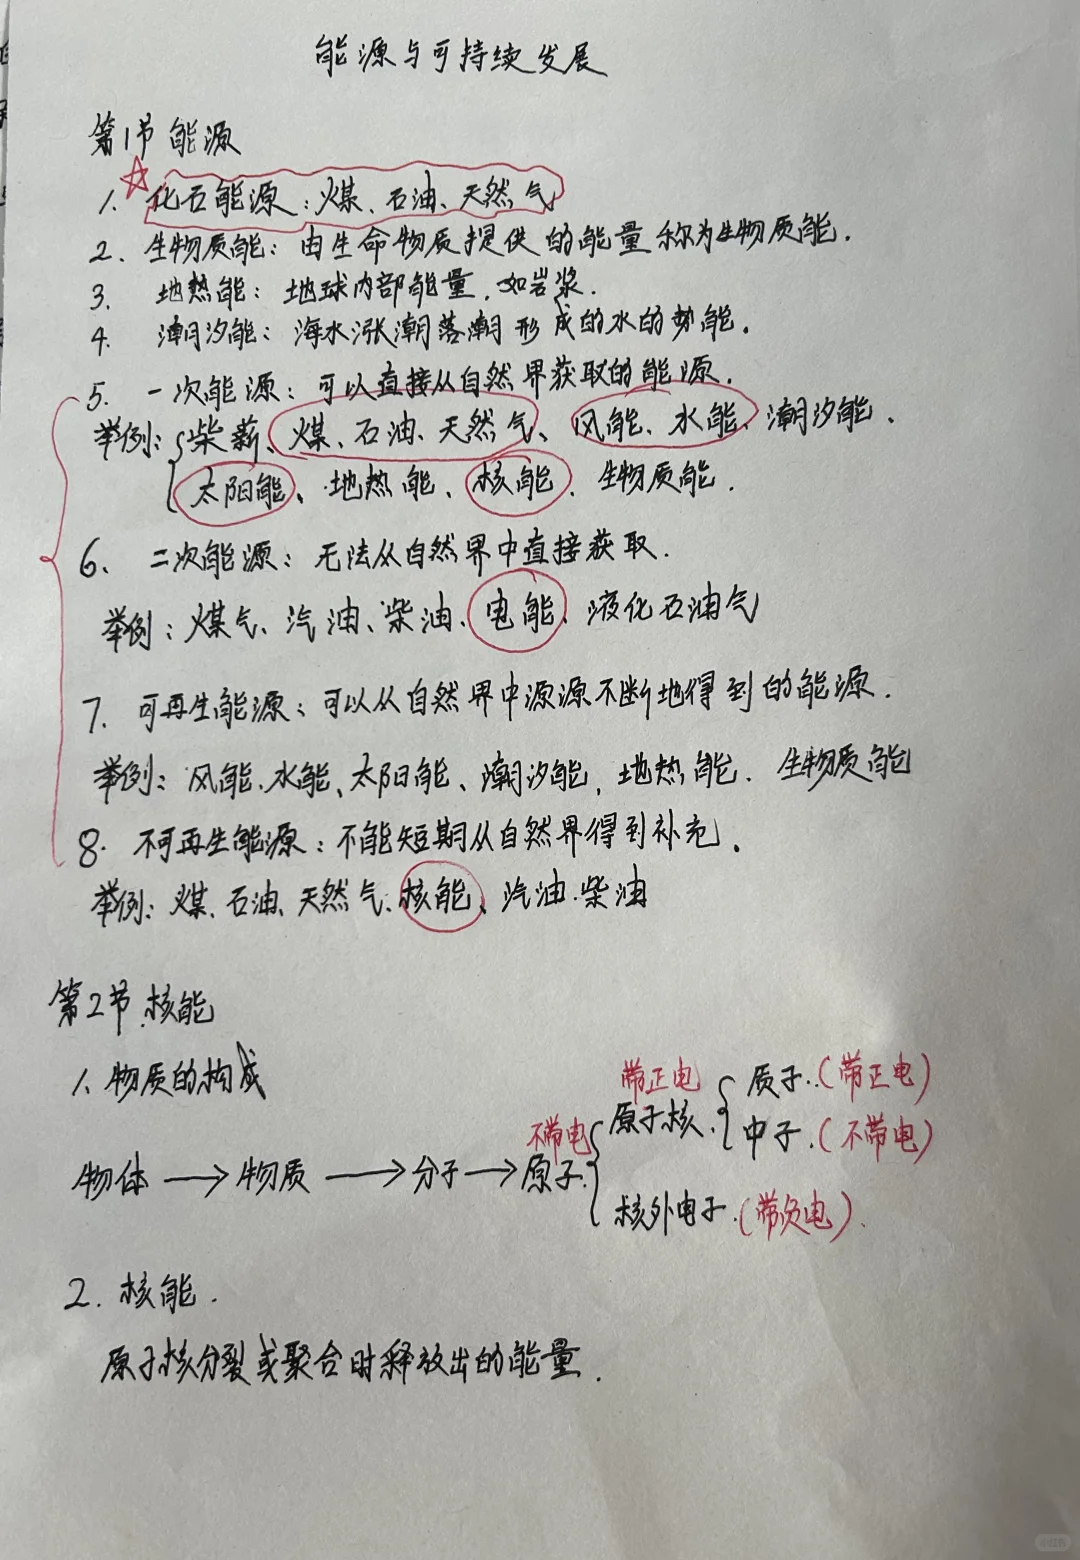 能源与可持续发展
第1节 能源
1. ☆ 化石能源：煤、石油、天然气
2. 生物质能：由生命物质提供的能量称为生物质能.
3. 地热能：地球内部能量，如岩浆.
4. 潮汐能：海水涨潮落潮形成的水的势能.
5. 一次能源：可以直接从自然界获取的能源.
举例：{柴薪、煤、石油、天然气、风能、水能、潮汐能.
太阳能、地热能、核能、生物质能.
6、二次能源：无法从自然界中直接获取.
举例：煤气、汽油、柴油、电能、液化石油气
7. 可再生能源：可以从自然界中源源不断地得到的能源.
举例：风能、水能、太阳能、潮汐能，地热能. 生物质能
8. 不可再生能源：不能短期从自然界得到补充.
举例：煤、石油、天然气、核能、汽油、柴油
第2节.核能
1、物质的构成
带正电 质子.(带正电)
不带电 { 原子核. { 中子.(不带电)
物体 → 物质 → 分子 → 原子.
核外电子.(带负电).
2. 核能.
原子核分裂或聚合时释放出的能量.